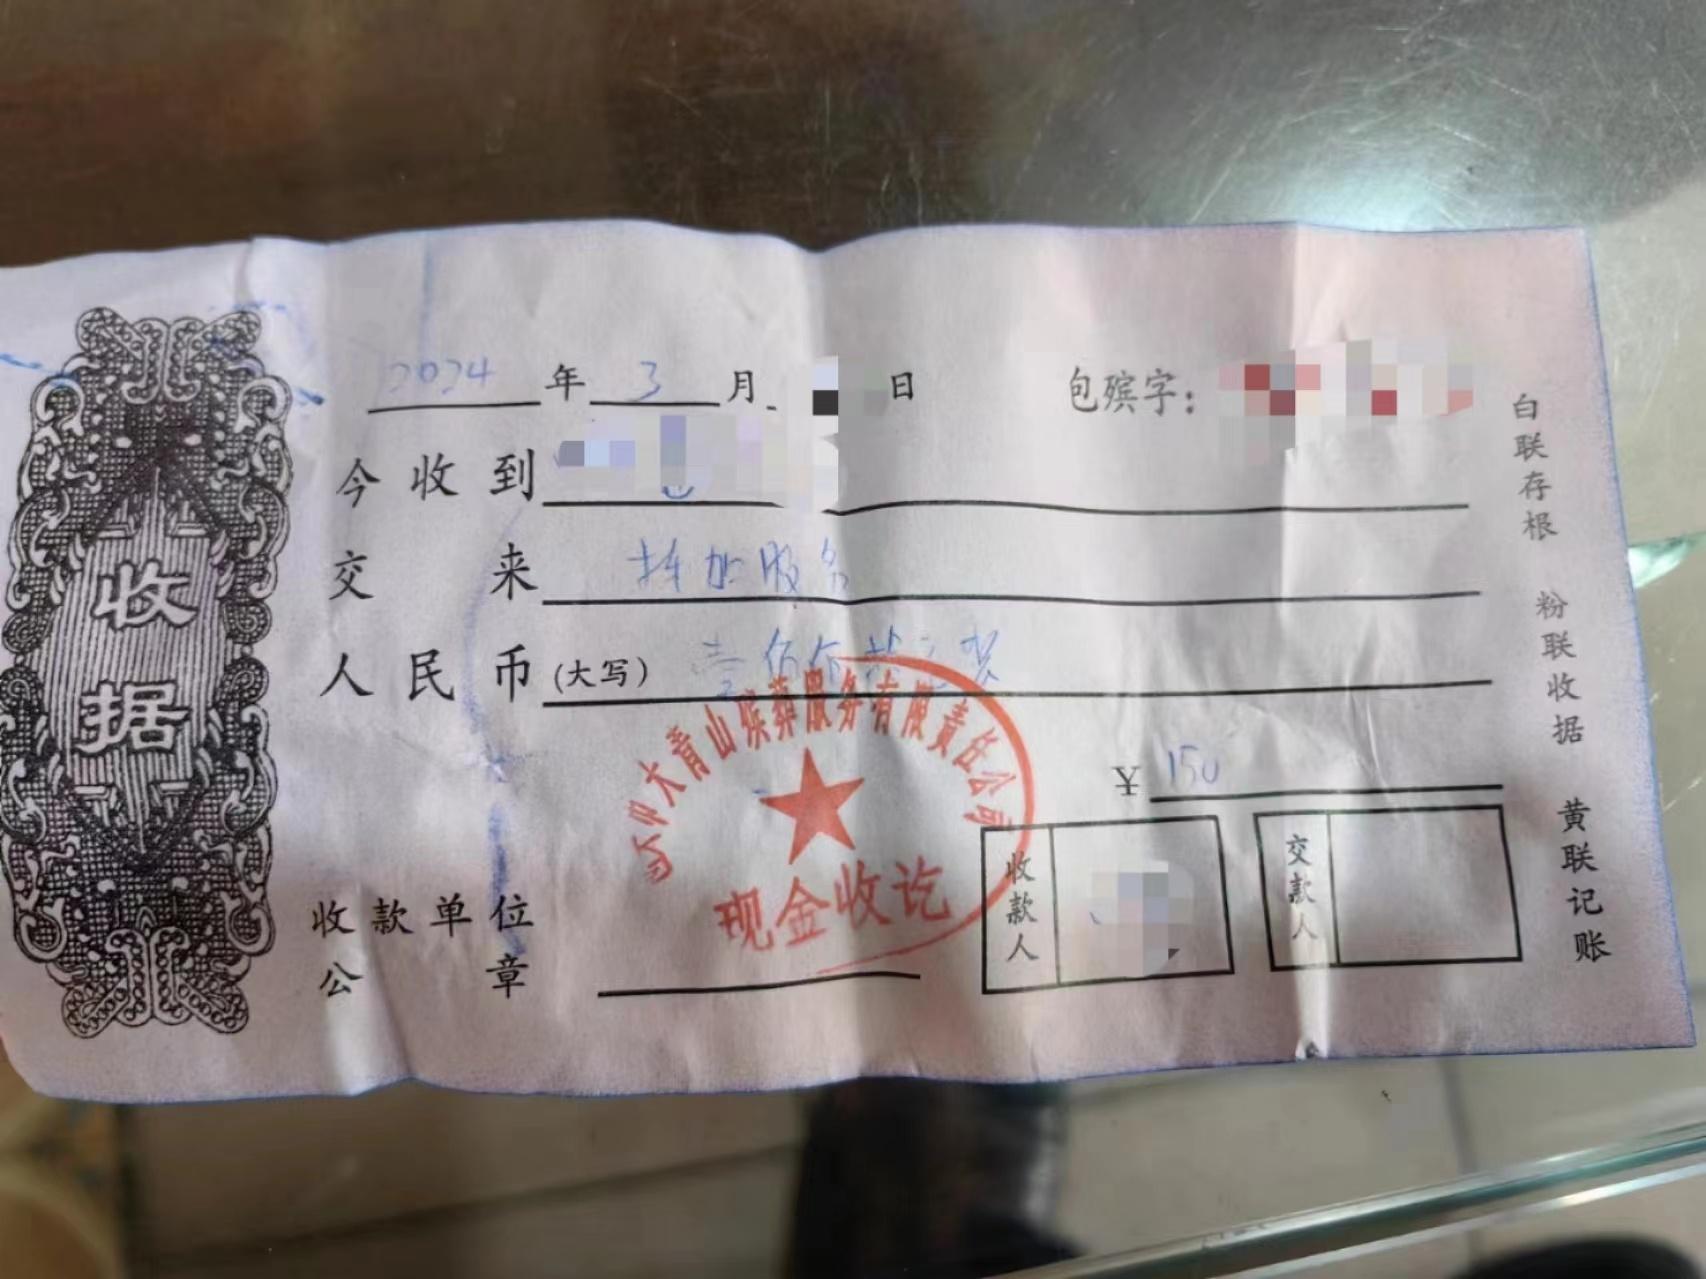 收据
2024年3月 日 包殡字：
今收到
交来 抬加服务
人民币(大写) 壹佰伍拾元整
大青山殡葬服务有限责任公司
现金收讫
¥ 150
收款单位
公章
收款人
交款人
白联存根 粉联收据 黄联记账